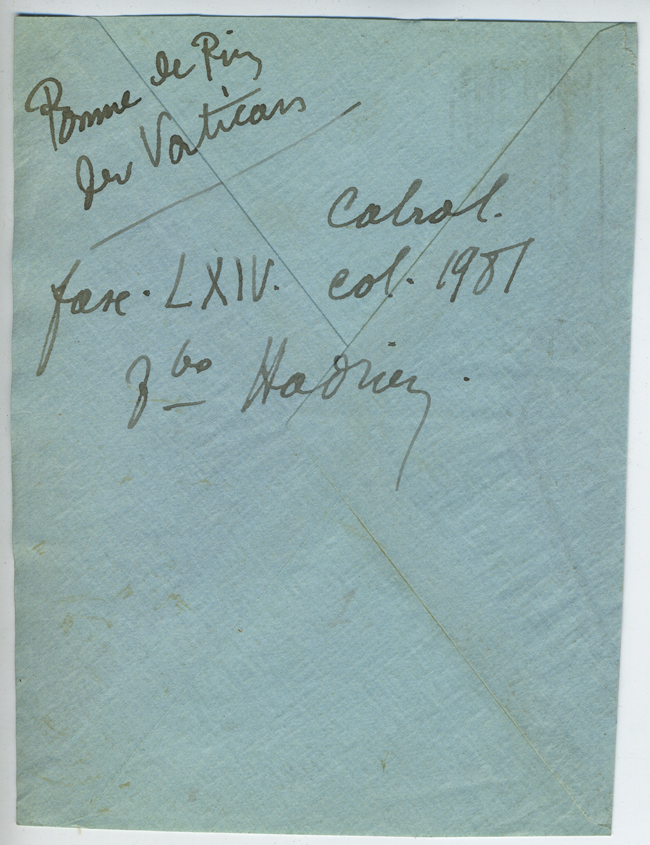 Pomme de Pin
des Vaticans
Cabrol.
fasc. LXIV. col. 1981
Vbo Hadrien.